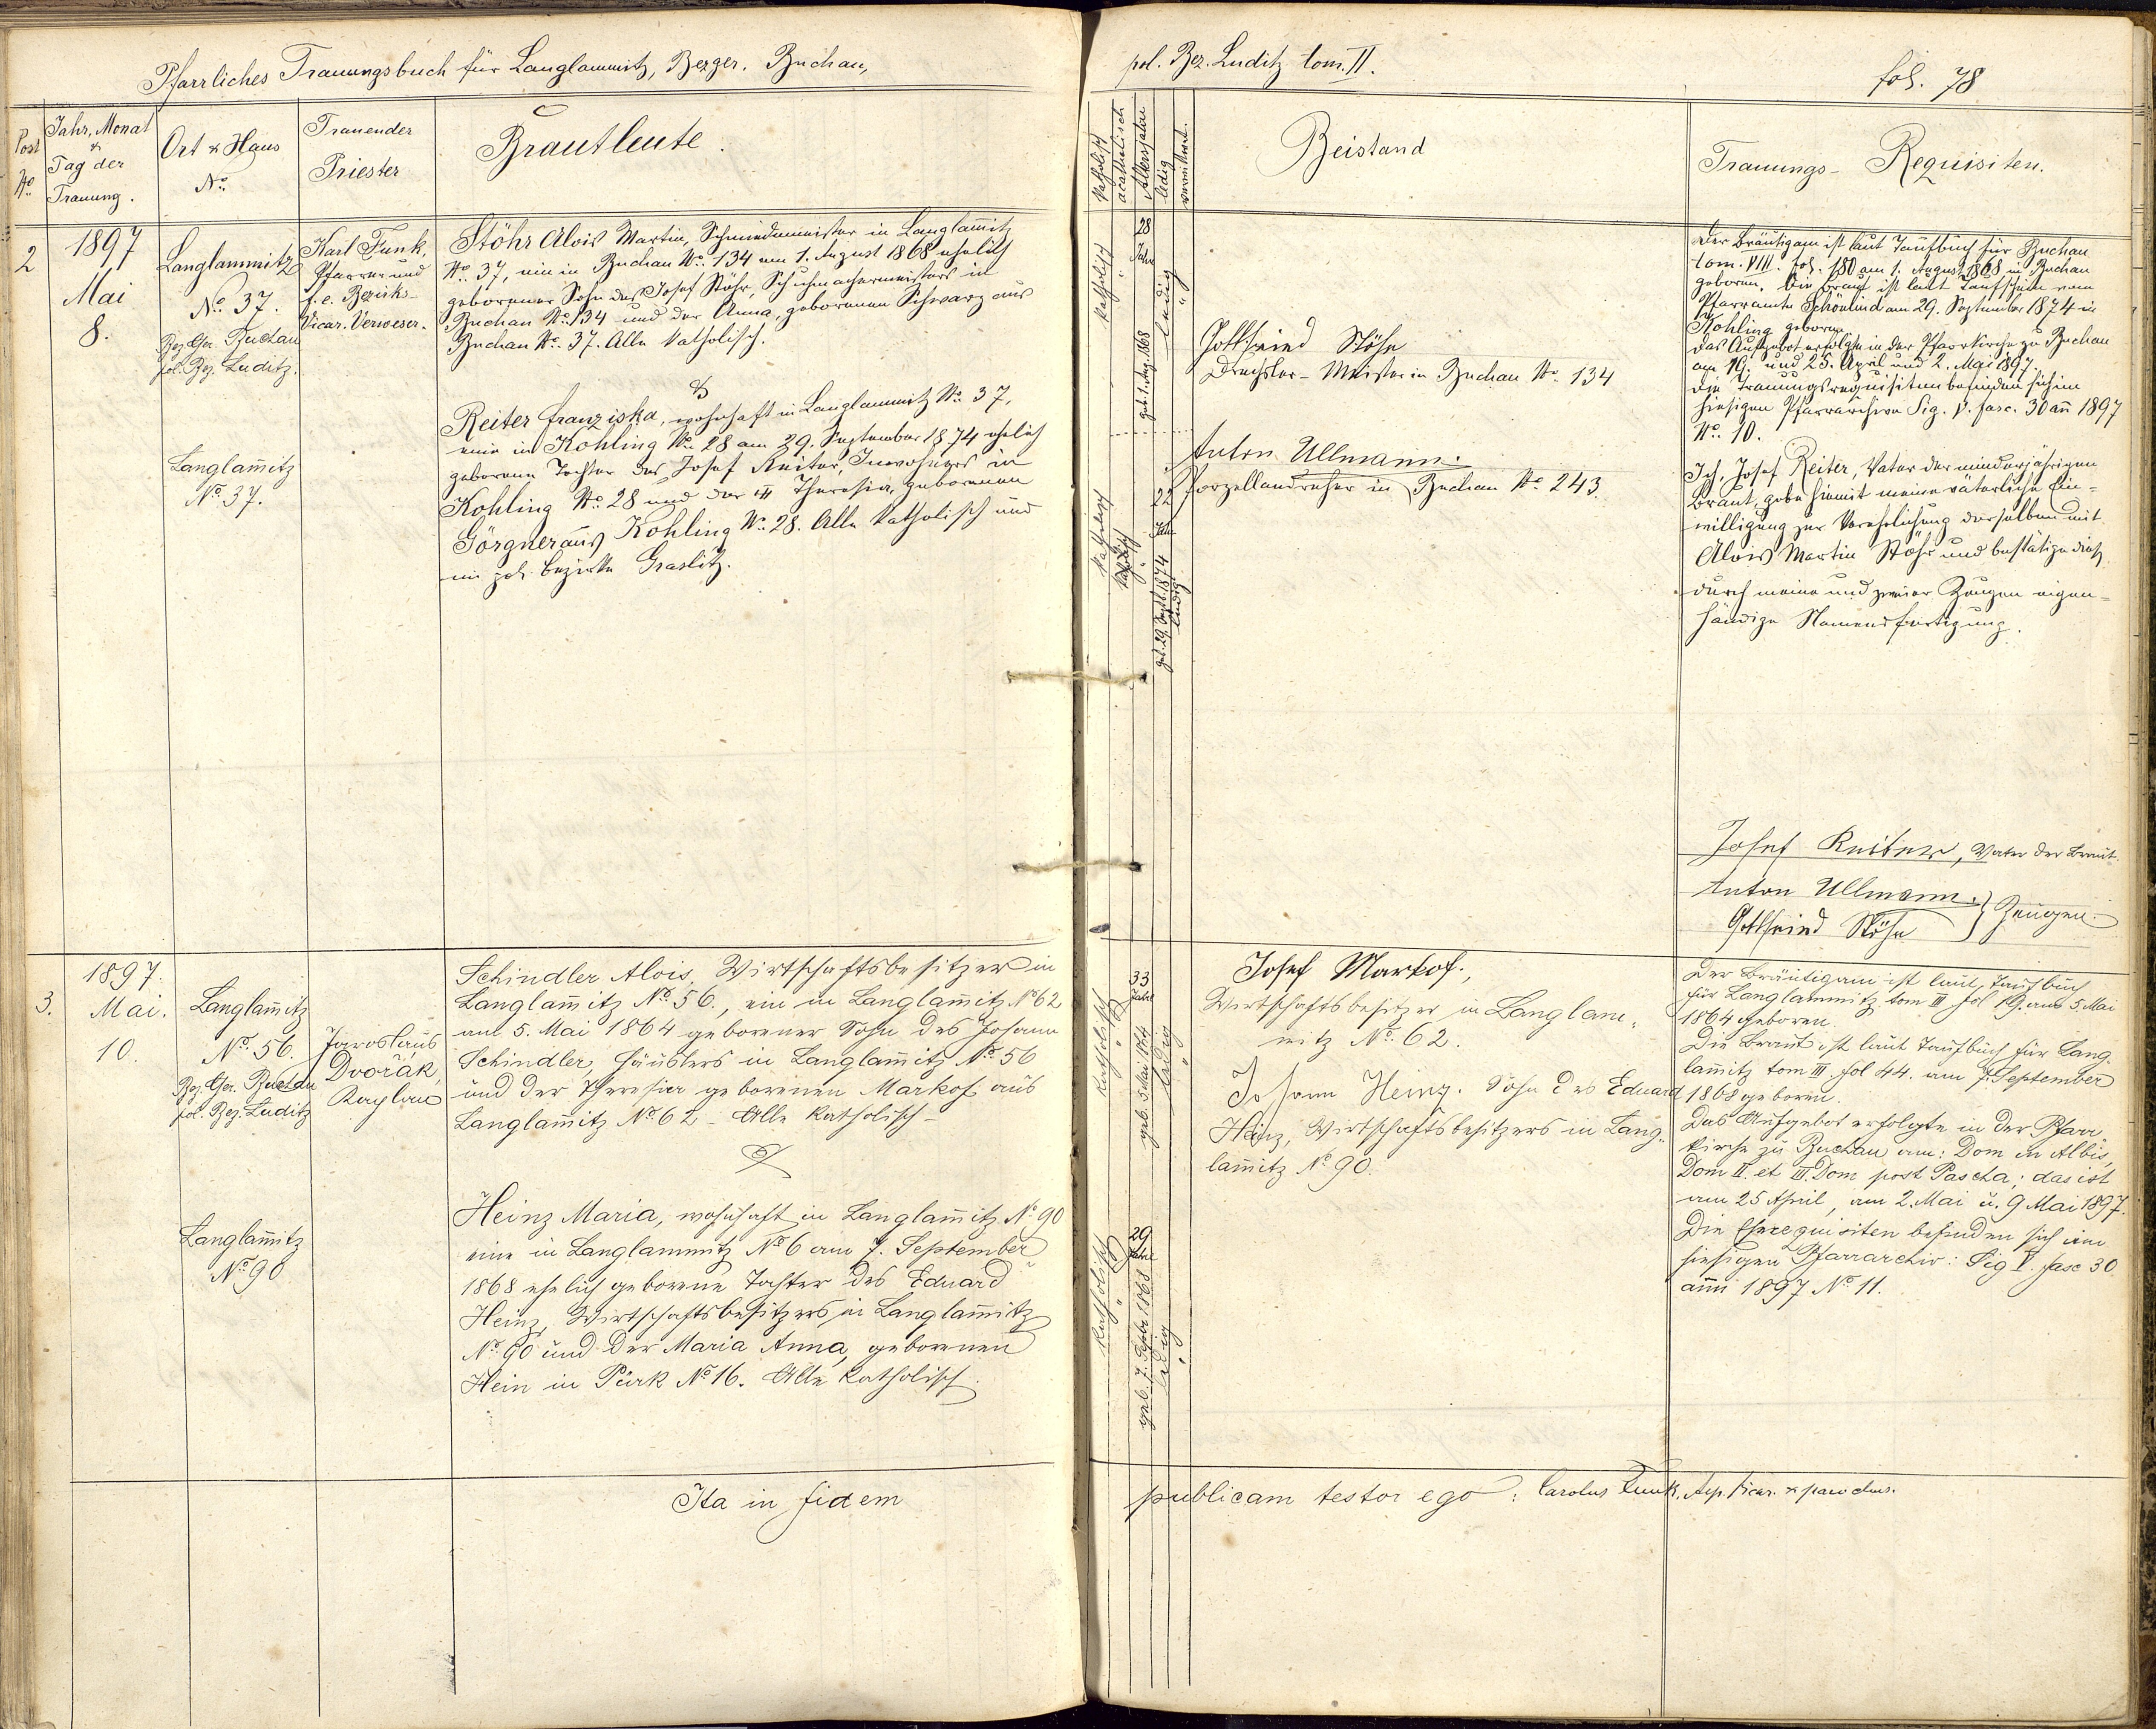 Pfarrliches Trauungsbuch für Langlammitz, Bezger. Buchau,
pol. Bez. Luditz tom. II.
fol. 78
Post No
Jahr, Monat & Tag der Trauung.
Ort & Haus No
Trauender Priester
Brautleute.
Katholisch
acatholisch
Altersjahre
ledig
verwitwet.
Beistand
Trauungs- Requisiten.
2
1897
Mai
8.
Langlammitz
No. 37.
Bez. Ger. Buchau
pol. Bez. Luditz.
Langlam̄itz
No. 37.
Karl Funk,
Pfarrer und
f. e. Bezirks-
Vicar. Verweser.
Stöhr Alois Martin, Schmiedemeister in Langlam̄itz
No. 37, ein in Buchau No. 134 am 1. August 1868 ehelich
geborener Sohn des Josef Stöhr, Schuhmachermeisters in
Buchau No. 134 und der Anna, geborenen Schwarz aus
Buchau No. 37. Alle katholisch.
&
Reiter Franziska, wohnhaft in Langlammitz No. 37,
eine in Kohling No. 28 am 29. September 1874 ehelich
geborene Tochter des Josef Reiter, Inwohners in
Kohling No. 28 und der Theresia, geborenen
Görgner aus Kohling No. 28. Alle katholisch und
im pol. Bezirke Graslitz.
katholisch
28
Jahre
geb. 1. Aug. 1868
ledig
katholisch
22
Jahre
geb. 29. Septb. 1874
ledig
Gottfried Stöhr
Drechsler-Meister in Buchau No. 134
Anton Ullmann.
Porzellandreher in Buchau No. 243.
Der Bräutigam ist laut Taufbuch für Buchau
tom. VIII. fol. 180 am 1. August 1868 in Buchau
geboren. Die Braut ist laut Taufschein vom
Pfarramte Schönlind am 29. September 1874 in
Kohling geboren.
Das Aufgebot erfolgte in der Pfarrkirche zu Buchau
am 19. und 25. April und 2. Mai 1897.
Die Trauungsrequisiten befinden sich im
hiesigen Pfarrarchive Sig. V. fasc. 30 an̄ 1897
No. 10.
Ich, Josef Reiter, Vater der minderjährigen
Braut, gebe hiemit meine väterliche Ein-
willigung zur Verehelichung derselben mit
Alois Martin Stöhr und bestätige dieß
durch meine und zweier Zeugen eigen-
händige Namensfertigung.
Josef Reiter, Vater der Braut.
Anton Ullmann.
Gottfried Stöhr } Zeugen.
3.
1897.
Mai.
10.
Langlam̄itz
No. 56.
Bez. Ger. Buchau
pol. Bez. Luditz
Langlam̄itz
No 90
Jaroslaus
Dvořák,
Kaplan
Schindler Alois, Wirtschaftsbesitzer in
Langlam̄itz No. 56., ein in Langlam̄itz No 62
am 5. Mai 1864 geborener Sohn des Johann
Schindler, Häuslers in Langlam̄itz No. 56
und der Theresia geborenen Markof aus
Langlam̄itz No. 62 - Alle katholisch -
&
Heinz Maria, wohnhaft in Langlam̄itz No 90
eine in Langlammitz No 6 am 7. September
1868 ehelich geborene Tochter des Eduard
Heinz, Wirtschaftsbesitzers in Langlam̄itz
No. 90 und der Maria Anna, geborenen
Hein in Pürk No 16. Alle katholisch.
katholisch
33
Jahre
geb. 5. Mai 1864
ledig
katholisch
29
Jahre
geb. 7. Septbr. 1868
ledig
Josef Markof.,
Wirtschaftsbesitzer in Langlam-
mitz No. 62.
Johann Heinz. Sohn des Eduard
Heinz, Wirtschaftsbesitzers in Lang-
lam̄itz No. 90.
Der Bräutigam ist laut Taufbuch
für Langlammitz tom III fol 19. am 5. Mai
1864 geboren.
Die Braut ist laut Taufbuch für Lang-
lam̄itz tom III. fol 44. am 7. September
1868 geboren.
Das Aufgebot erfolgte in der Pfarr-
kirche zu Buchau am: Dom in Albis,
Dom II. et III. Dom post Pascha; das ist
am 25 April, am 2. Mai u. 9 Mai 1897.
Die Eherequisiten befinden sich im
hiesigen Pfarrarchiv: Sig V. fasc 30
anni 1897 No 11.
Ita in fidem
publicam testor ego: Carolus Funk,